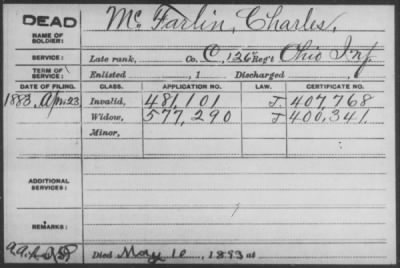 DEAD
NAME OF SOLDIER: Mc Farlin, Charles,
SERVICE: Late rank, Co. C, 126 Reg't Ohio Inf.
TERM OF SERVICE: Enlisted , 1 Discharged , 1
DATE OF FILING. CLASS. APPLICATION NO. LAW. CERTIFICATE NO.
1883, Apr. 23, Invalid, 481,101 J. 407,768
Widow, 577,290 J 400,341.
Minor,
ADDITIONAL SERVICES:
REMARKS:
Died May 10, 1893 at